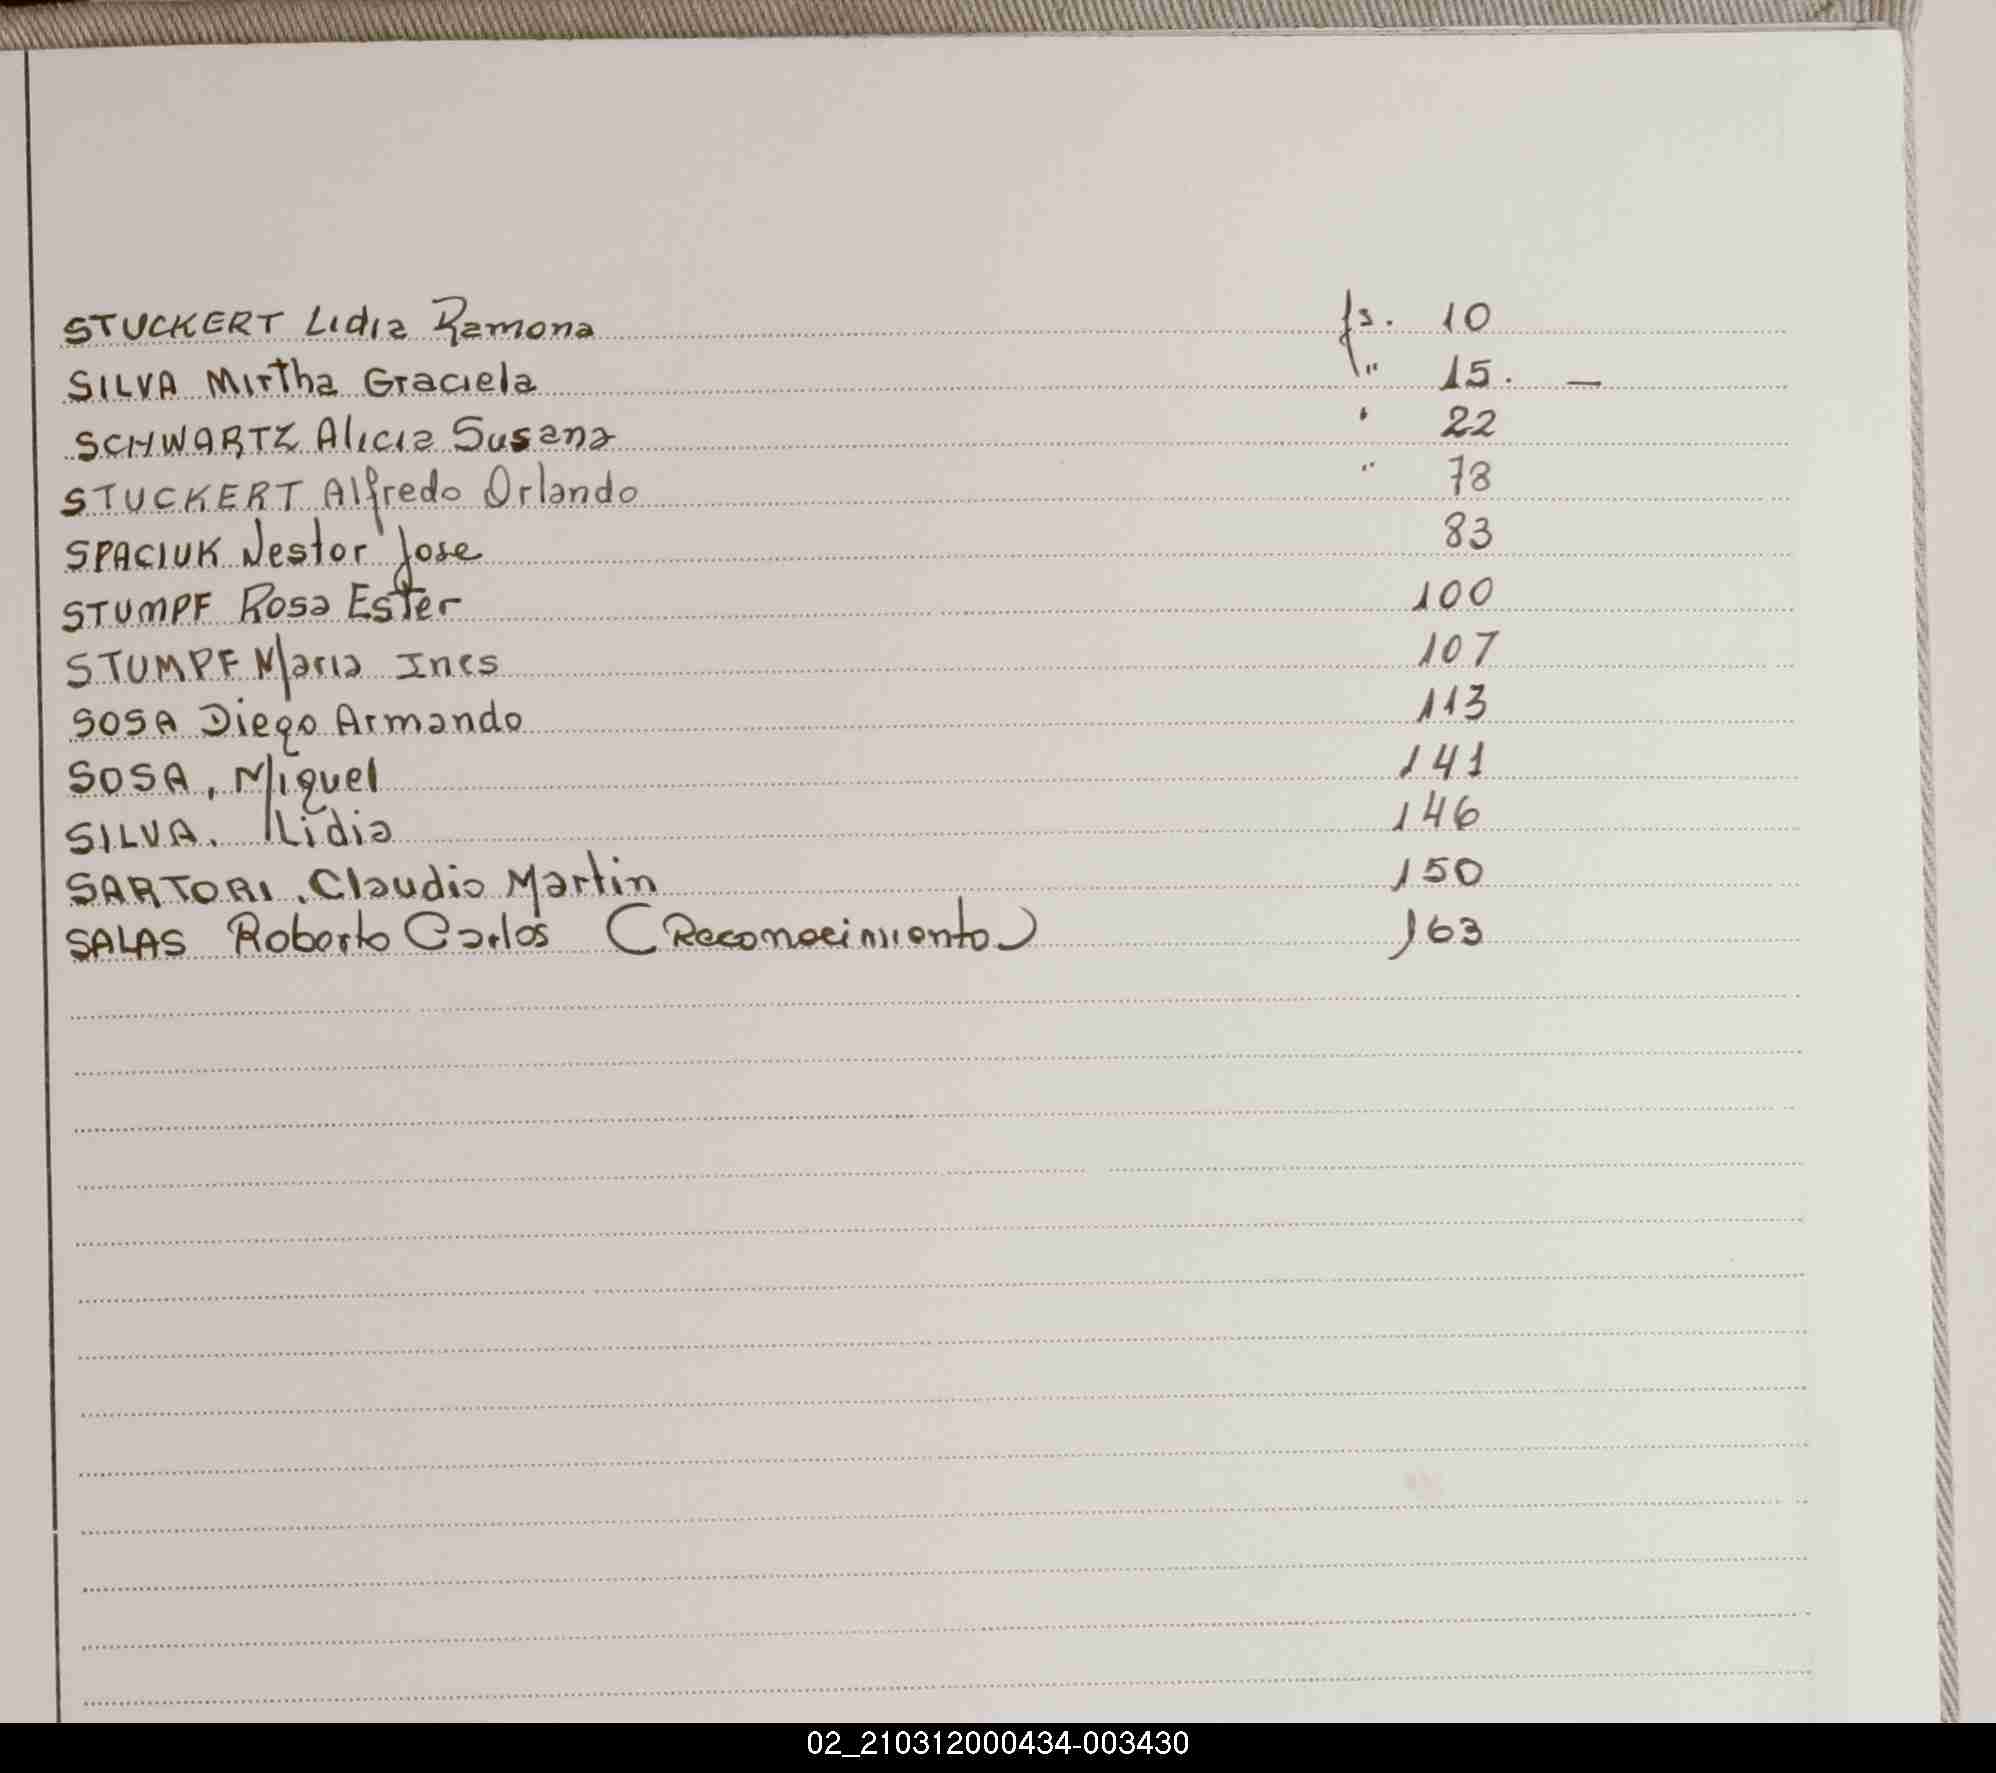 STUCKERT Lidia Ramona fs. 10
SILVA Mirtha Graciela " 15. —
SCHWARTZ Alicia Susana " 22
STUCKERT Alfredo Orlando " 78
SPACIUK Nestor Jose 83
STUMPF Rosa Ester 100
STUMPF Maria Ines 107
SOSA Diego Armando 113
SOSA, Miguel 141
SILVA. Lidia 146
SARTORI, Claudio Martin 150
SALAS Roberto Carlos (Reconocimiento) 163
02_210312000434-003430